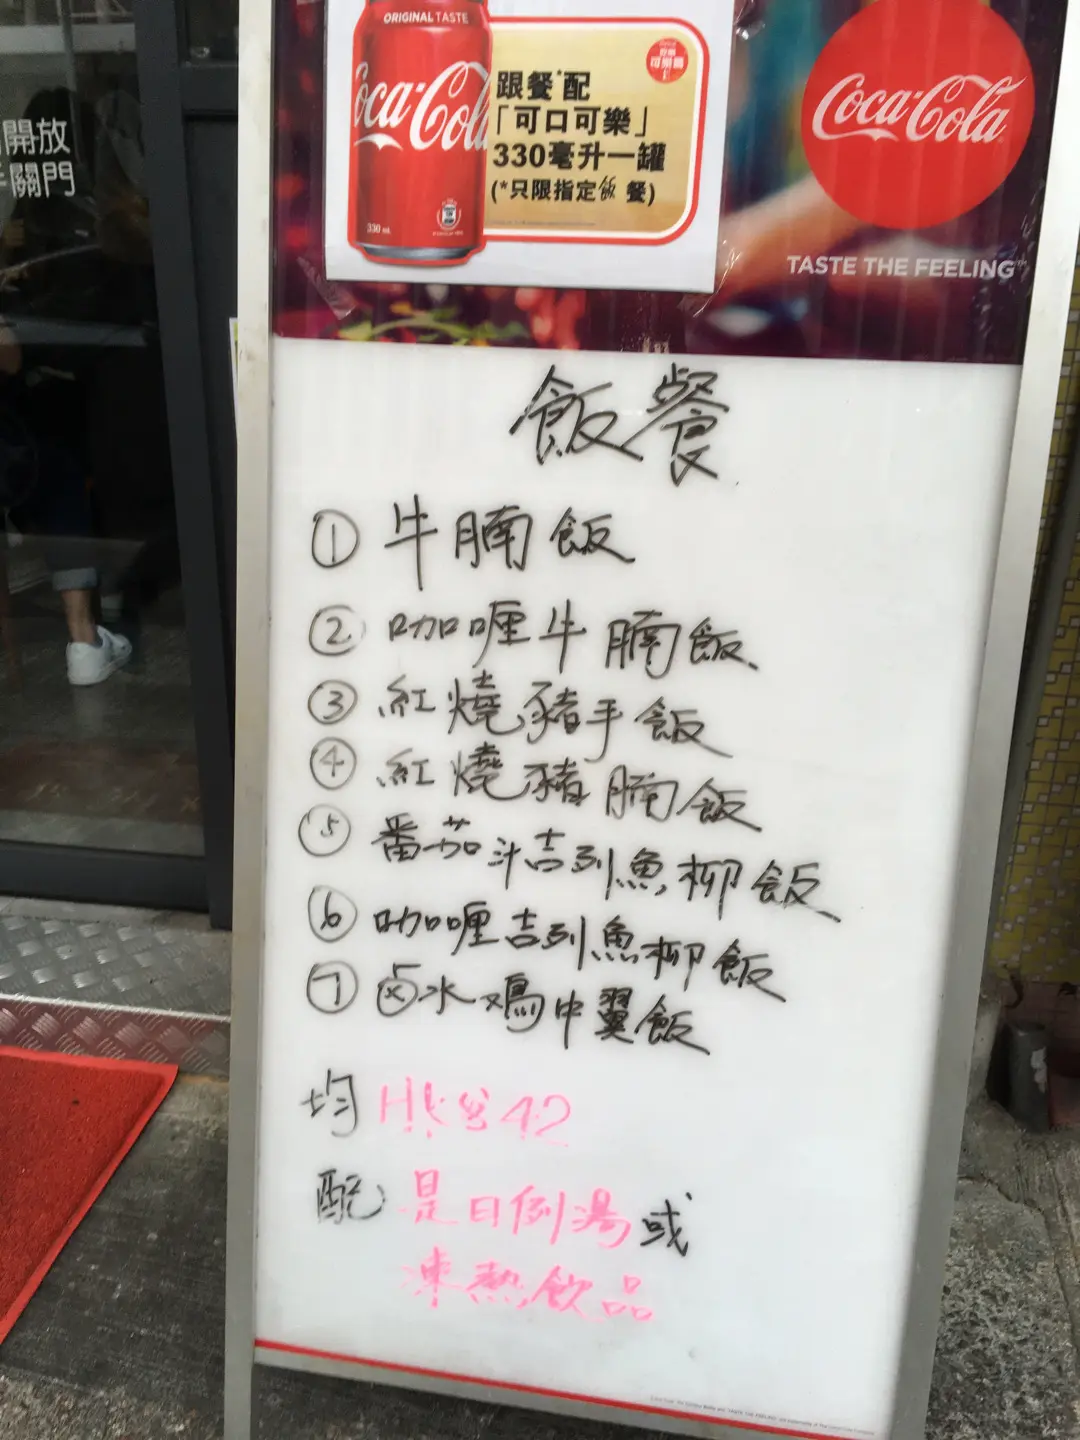 ORIGINAL TASTE
Coca-Cola
330 mL
跟餐*配
「可口可樂」
330毫升一罐
(*只限指定飯餐)
Coca-Cola
TASTE THE FEELING
開放
關門
飯餐
① 牛腩飯
② 咖喱牛腩飯
③ 紅燒豬手飯
④ 紅燒豬腩飯
⑤ 番茄汁吉列魚柳飯
⑥ 咖喱吉列魚柳飯
⑦ 卤水鳮中翼飯
均 HK$42
配 是日例湯或
凍熱飲品